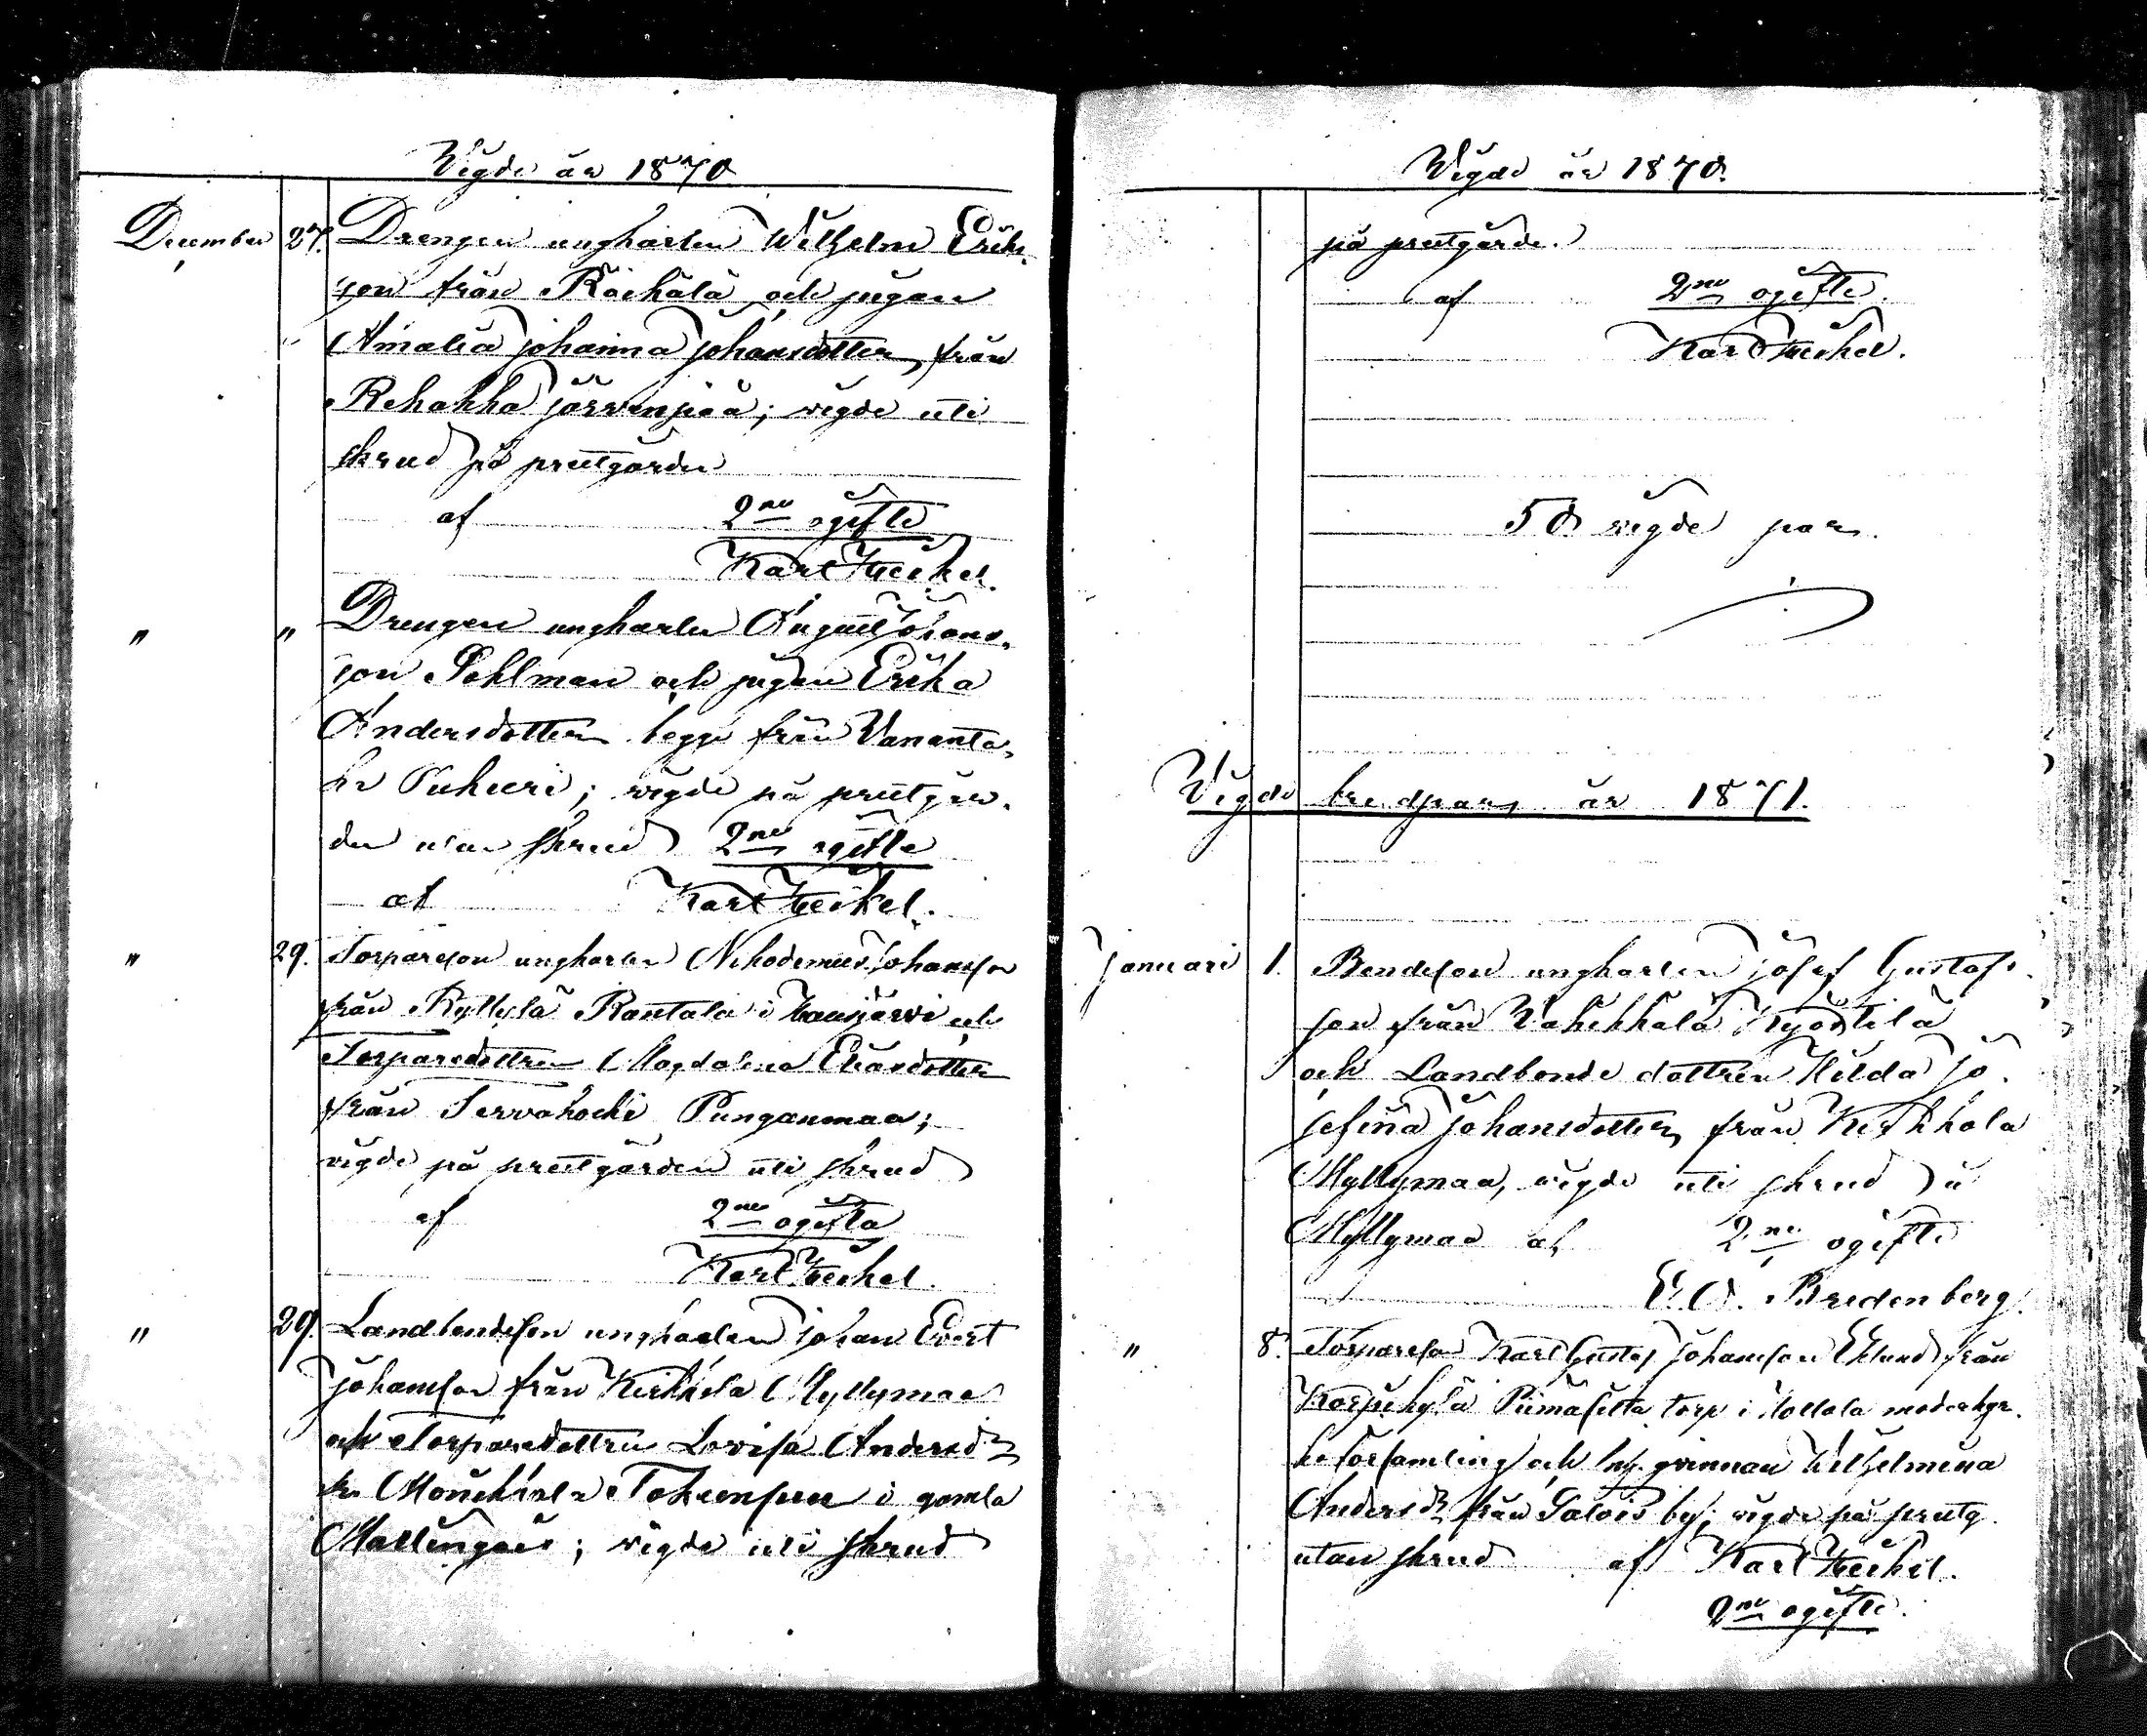 Vigde år 1870
December 27. Drengen ungkarlen Wilhelm Erik-
son från Räikälä och pigan
Amalia Johanna Johansdotter, från
Rehakka Järvenpää; vigde uti
skrud på prestgården
af 2ne ogifte
Karl Heikel.
" " Drengen ungkarlen August Johans-
son Pohlman och pigan Erika
Andersdotter begge från Vananta-
ka Puhuri; vigde på prestgår-
den utan skrud 2ne ogifte
af Karl Heikel.
" 29. Torpareson ungkarlen Nikodemus Johansson
från Ryttylä Rantala i Hausjärvi och
Torparedottren Magdalena Eliasdotter
från Tervakoski Punganmaa;
vigde på prestgården uti skrud
af 2ne ogifta
Karl Heikel.
" 29. Landbondeson ungkarlen Johan Evert
Johansson från Kerkkola Myllymaa
och Torparedottren Lovisa Andersdr
fr. i gamla
; vigde uti skrud
Vigde år 1870.
på prestgården.
af 2ne ogifte.
Karl Heikel.
50 vigde par.
Vigde brudpar, år 1871.
Januari 1. Bondeson ungkarlen Josef Gustafs-
son från Vahikkala Kyöstilä
och Landbonde dottren Hilda Jo-
sefina Johansdotter, från Kerkkola
Myllymaa, vigde uti skrud i
Myllymaa af 2ne ogifte
Bredenberg.
" 8. Torpareson Karl Gustaf Johansson Eklund från
Korpikylä Piimäsilta torp i Hollola moderkyr-
ko församling och inh. qvinnan Wilhelmina
Andersdr från Salois by; vigde på prestg.
utan skrud af Karl Heikel.
2ne ogifte.